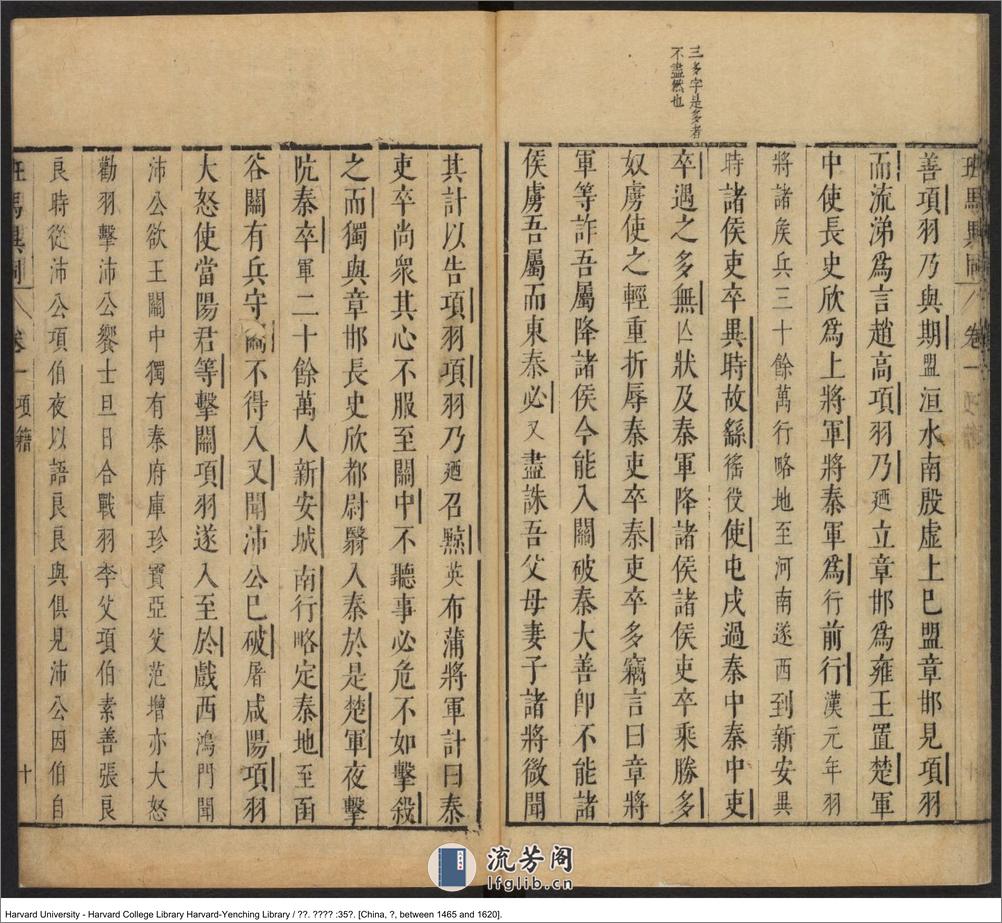 三多字是多者
不盡然也
班馬異同 卷一 項籍 十
善項羽乃與期盟洹水南殷虛上已盟章邯見項羽
而流涕爲言趙高項羽乃廼立章邯爲雍王置楚軍
中使長史欣爲上將軍將秦軍爲行前行漢元年羽
將諸矦兵三十餘萬行略地至河南遂西到新安異
時諸侯吏卒異時故繇徭役使屯戍過秦中秦中吏
卒遇之多無亡狀及秦軍降諸侯諸侯吏卒乘勝多
奴虜使之輕重折辱秦吏卒秦吏卒多竊言曰章將
軍等詐吾屬降諸侯今能入關破秦大善卽不能諸
侯虜吾屬而東秦必又盡誅吾父母妻子諸將微聞
其計以告項羽項羽乃廼召黥英布蒲將軍計曰秦
吏卒尚衆其心不服至關中不聽事必危不如擊殺
之而獨與章邯長史欣都尉翳入秦於是楚軍夜擊
阬秦卒軍二十餘萬人新安城南行略定秦地至函
谷關有兵守不得入又聞沛公已破屠咸陽項羽
大怒使當陽君等擊關項羽遂入至於戲西鴻門聞
沛公欲王關中獨有秦府庫珍寶亞父范增亦大怒
勸羽擊沛公饗士旦日合戰羽季父項伯素善張良
良時從沛公項伯夜以語良良與俱見沛公因伯自
班馬異同 卷一 項籍 十
流芳阁
lfglib.cn
Harvard University - Harvard College Library Harvard-Yenching Library / ??. ???? :35?. [China, ?, between 1465 and 1620].